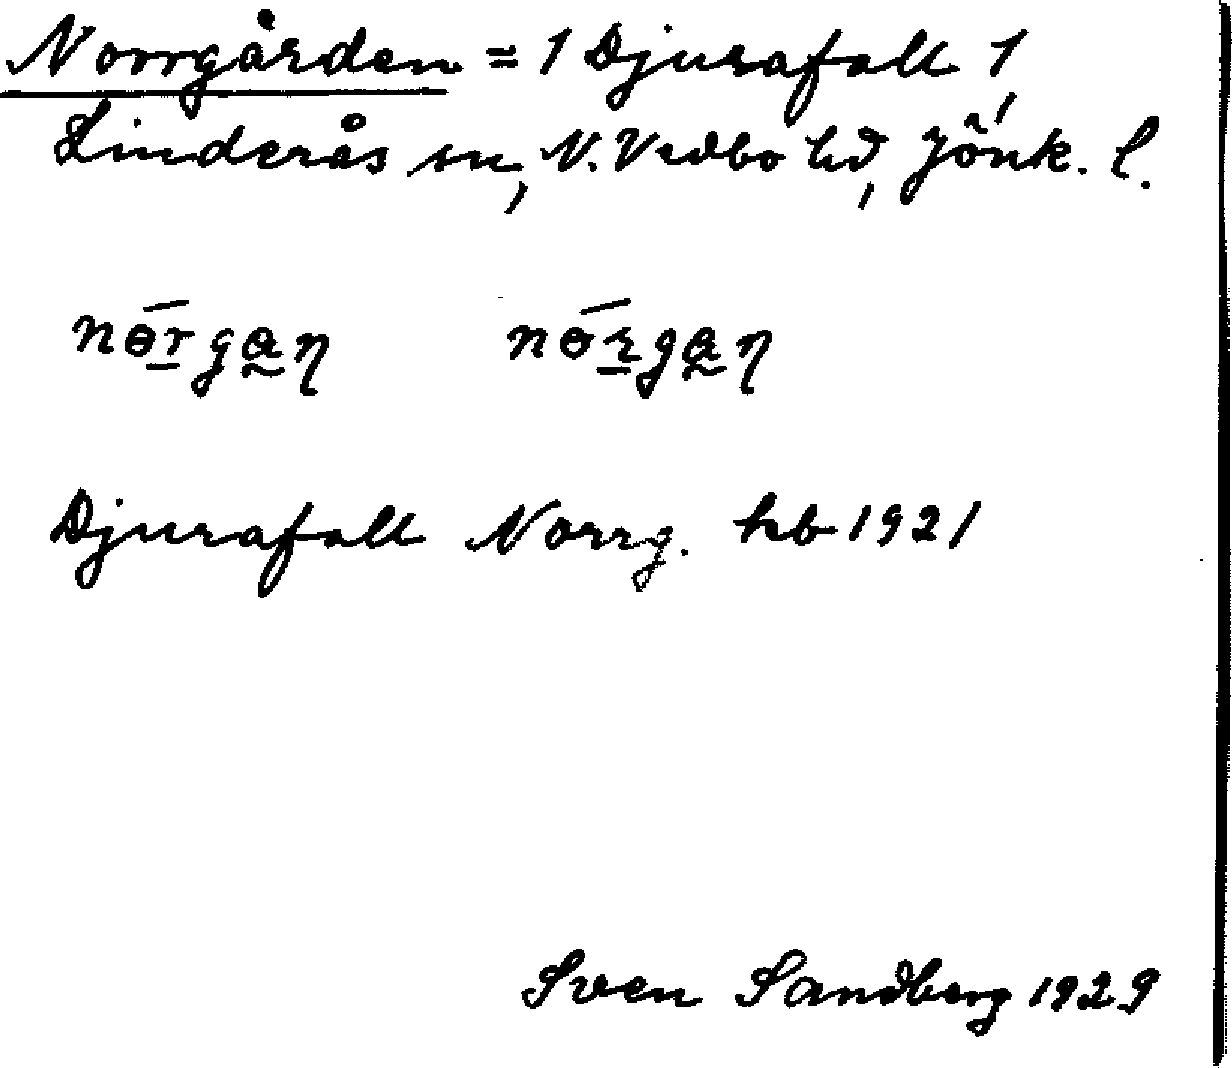 Norrgården = 1 Djurafall 1,
Linderås sn, N. Vedbo hd, Jönk. l.
nɵrgan nɵrgan
Djurafall Norrg. hb 1921
Sven Sandberg 1929